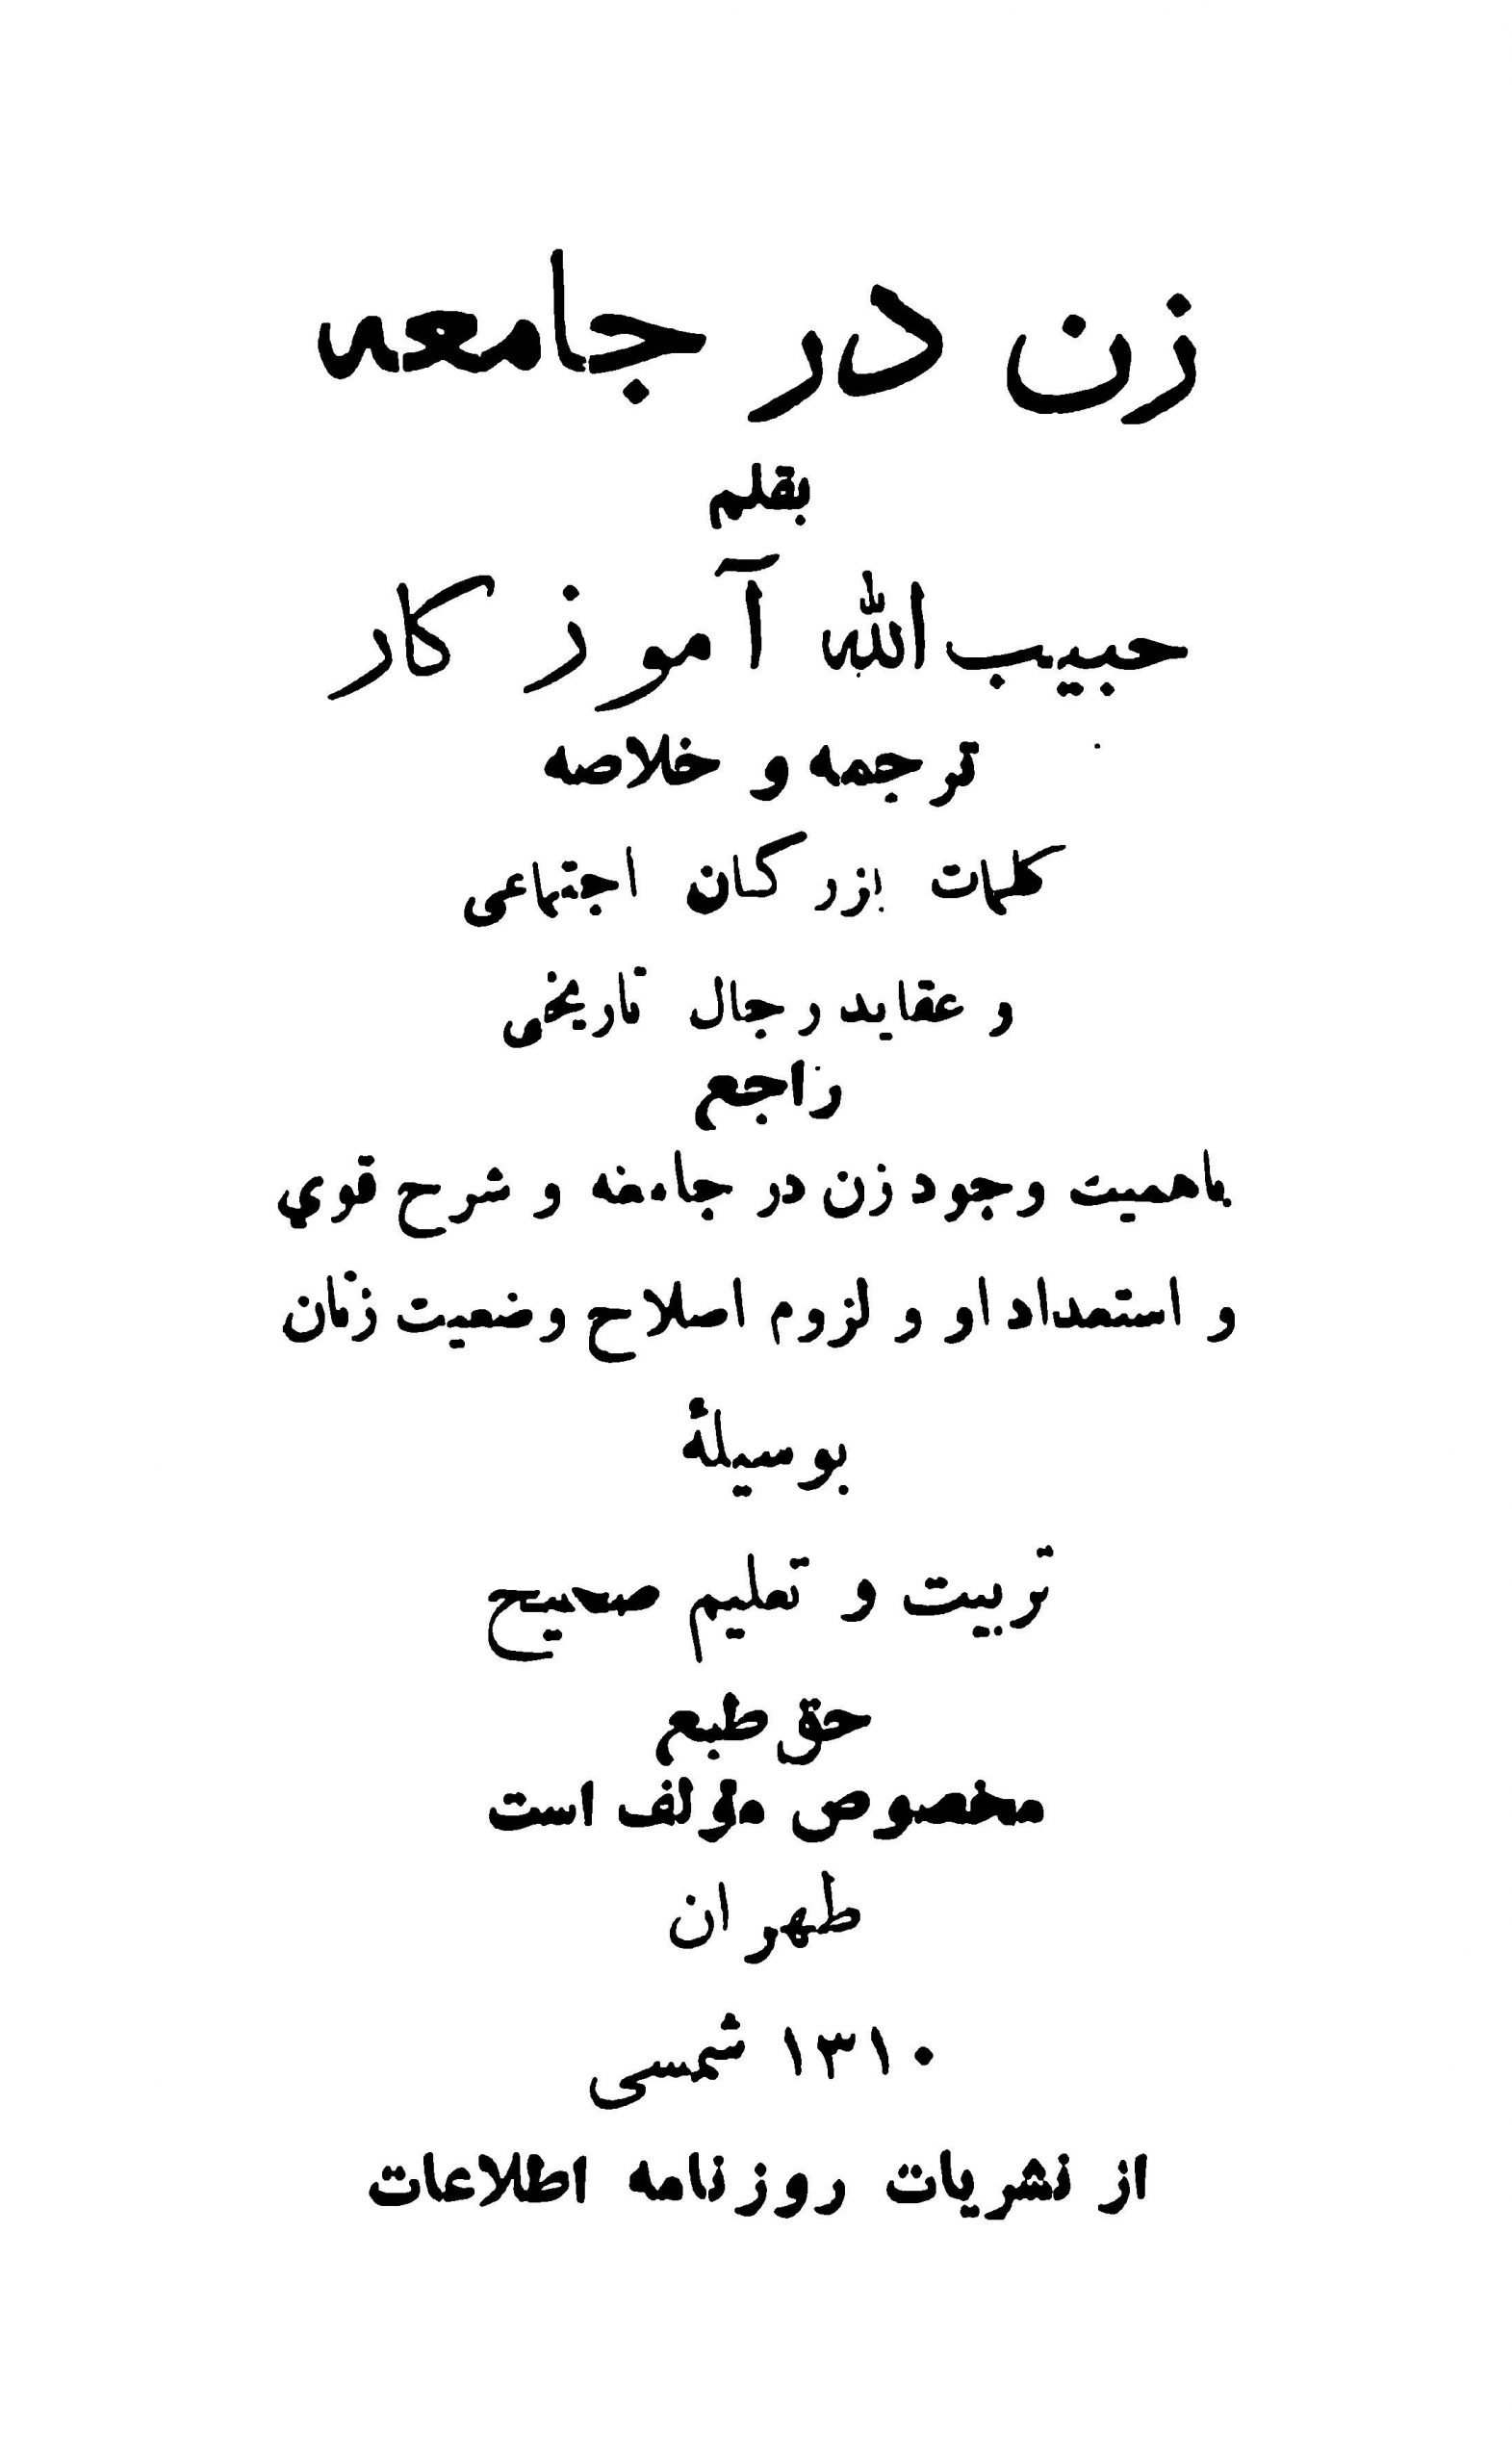 زن در جامعه
بقلم
حبیب‌الله آموزکار
ترجمه و خلاصه
کلمات بزرکان اجتماعی
و عقاید رجال تاریخی
راجع
باهمیت وجود زن در جامعه و شرح قوي
و استعداد او و لزوم اصلاح وضعیت زنان
بوسیلهٔ
تربیت و تعلیم صحیح
حق طبع
مخصوص مؤلف است
طهران
۱۳۱۰ شمسی
از نشریات روزنامه اطلاعات